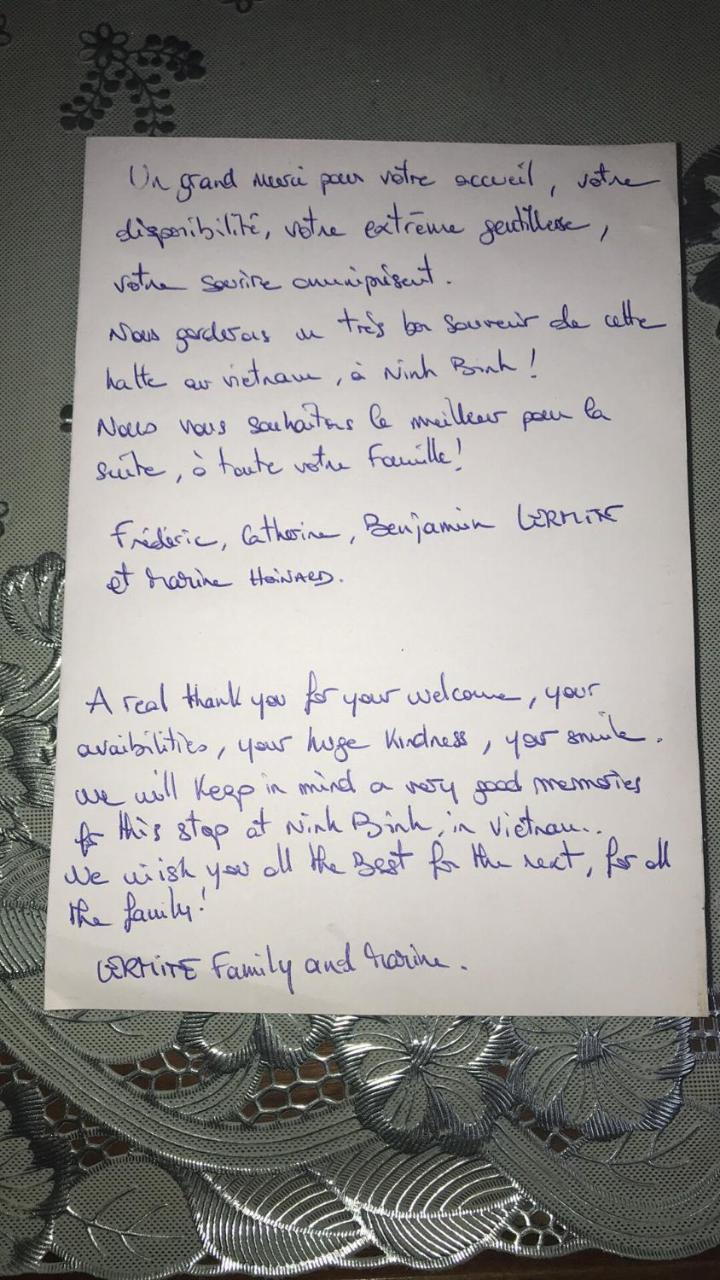 Un grand merci pour votre accueil, votre
disponibilité, votre extrême gentillesse,
votre sourire omniprésent.
Nous garderons un très bon souvenir de cette
halte au vietnam, à Ninh Binh !
Nous vous souhaitons le meilleur pour la
suite, à toute votre famille !
Frédéric, Catherine, Benjamin LERMITE
et Marine
A real thank you for your welcome, your
avaibilities, your huge kindness, your smile.
We will keep in mind a very good memories
for this stop at Ninh Binh, in Vietnam..
We wish you all the Best for the next, for all
the family!
LERMITE Family and Marine.